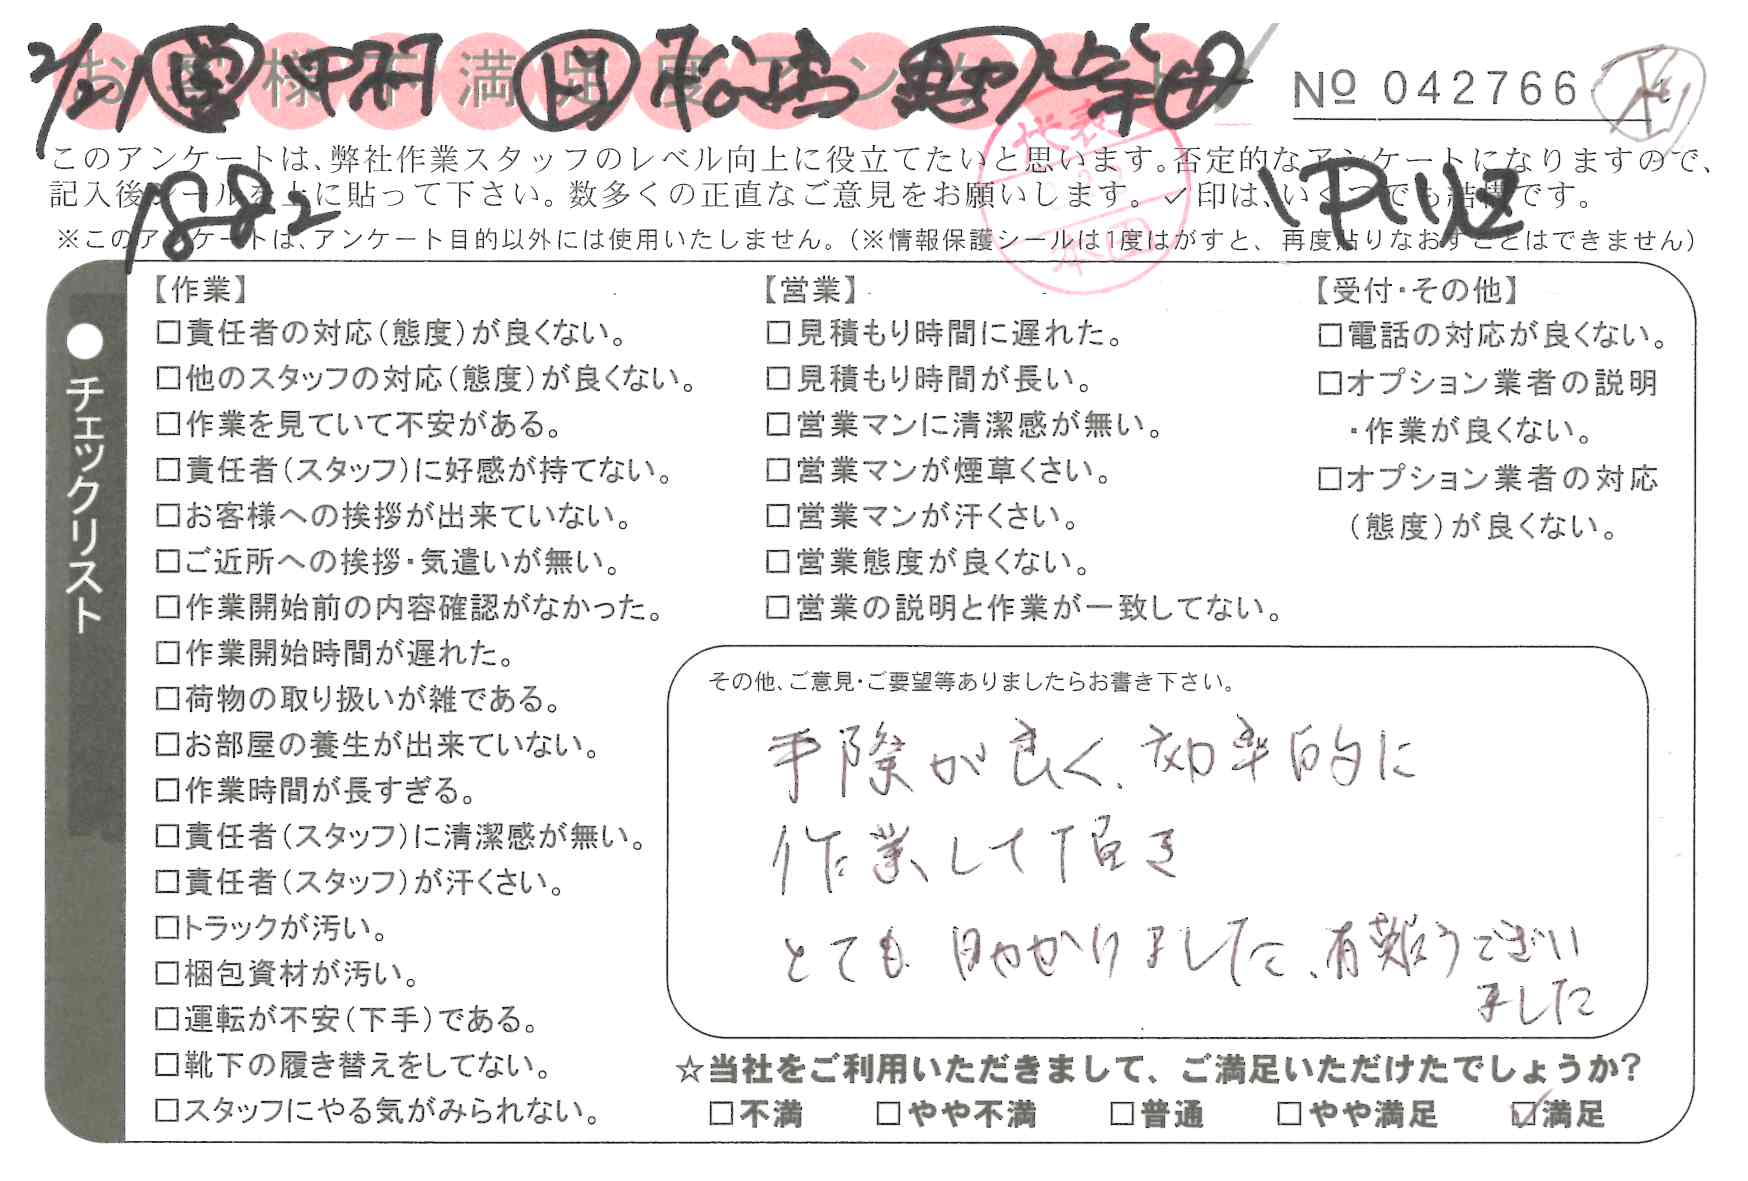 お客様不満足度アンケート
2/21 営 中村
No 042766
このアンケートは、弊社作業スタッフのレベル向上に役立てたいと思います。否定的なアンケートになりますので、
記入後シールを上に貼って下さい。数多くの正直なご意見をお願いします。✓印は、いくつでも結構です。
※このアンケートは、アンケート目的以外には使用いたしません。(※情報保護シールは1度はがすと、再度貼りなおすことはできません)
●チェックリスト
【作業】
□責任者の対応(態度)が良くない。
□他のスタッフの対応(態度)が良くない。
□作業を見ていて不安がある。
□責任者(スタッフ)に好感が持てない。
□お客様への挨拶が出来ていない。
□ご近所への挨拶・気遣いが無い。
□作業開始前の内容確認がなかった。
□作業開始時間が遅れた。
□荷物の取り扱いが雑である。
□お部屋の養生が出来ていない。
□作業時間が長すぎる。
□責任者(スタッフ)に清潔感が無い。
□責任者(スタッフ)が汗くさい。
□トラックが汚い。
□梱包資材が汚い。
□運転が不安(下手)である。
□靴下の履き替えをしてない。
□スタッフにやる気がみられない。
【営業】
□見積もり時間に遅れた。
□見積もり時間が長い。
□営業マンに清潔感が無い。
□営業マンが煙草くさい。
□営業マンが汗くさい。
□営業態度が良くない。
□営業の説明と作業が一致してない。
【受付・その他】
□電話の対応が良くない。
□オプション業者の説明
・作業が良くない。
□オプション業者の対応
(態度)が良くない。
その他、ご意見・ご要望等ありましたらお書き下さい。
手際が良く、効率的に
作業して頂き
とても助かりました、有難うござい
ました
☆当社をご利用いただきまして、ご満足いただけたでしょうか?
□不満 □やや不満 □普通 □やや満足 ☑満足